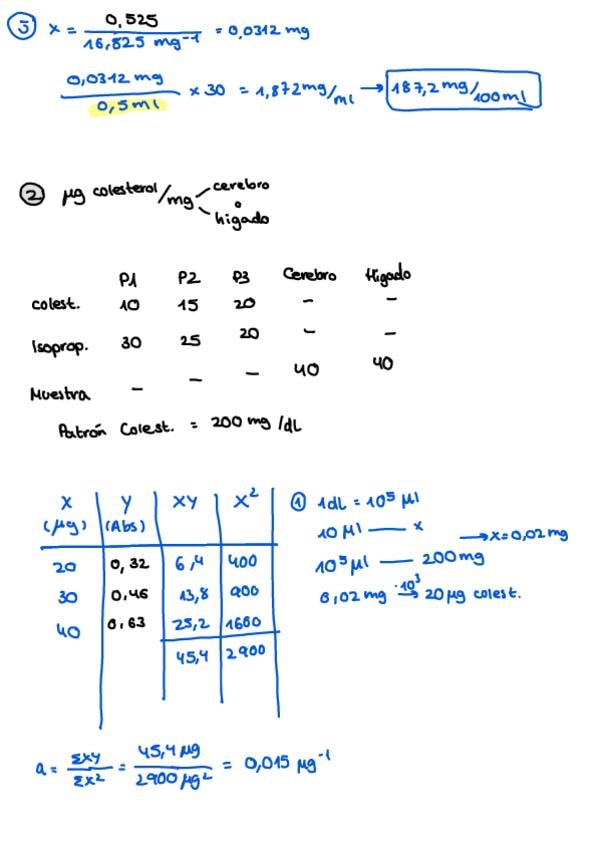 ③ x = 0,525 / 16,825 mg⁻¹ = 0,0312 mg
0,0312 mg / 0,5 ml × 30 = 1,872 mg/ml → 187,2 mg/100ml
② µg colesterol/mg cerebro o higado
P1 P2 P3 Cerebro Higado
colest. 10 15 20 - -
Isoprop. 30 25 20 - -
Muestra - - - 40 40
Patrón Colest. = 200 mg/dL
X (µg) Y (Abs) XY X²
20 0,32 6,4 400
30 0,46 13,8 900
40 0,63 25,2 1600
45,4 2900
① 1dL = 10⁵ µl
10 µl — x → x = 0,02 mg
10⁵ µl — 200 mg
0,02 mg ·10³ → 20 µg colest.
a = Σxy / Σx² = 45,4 µg / 2900 µg² = 0,015 µg⁻¹